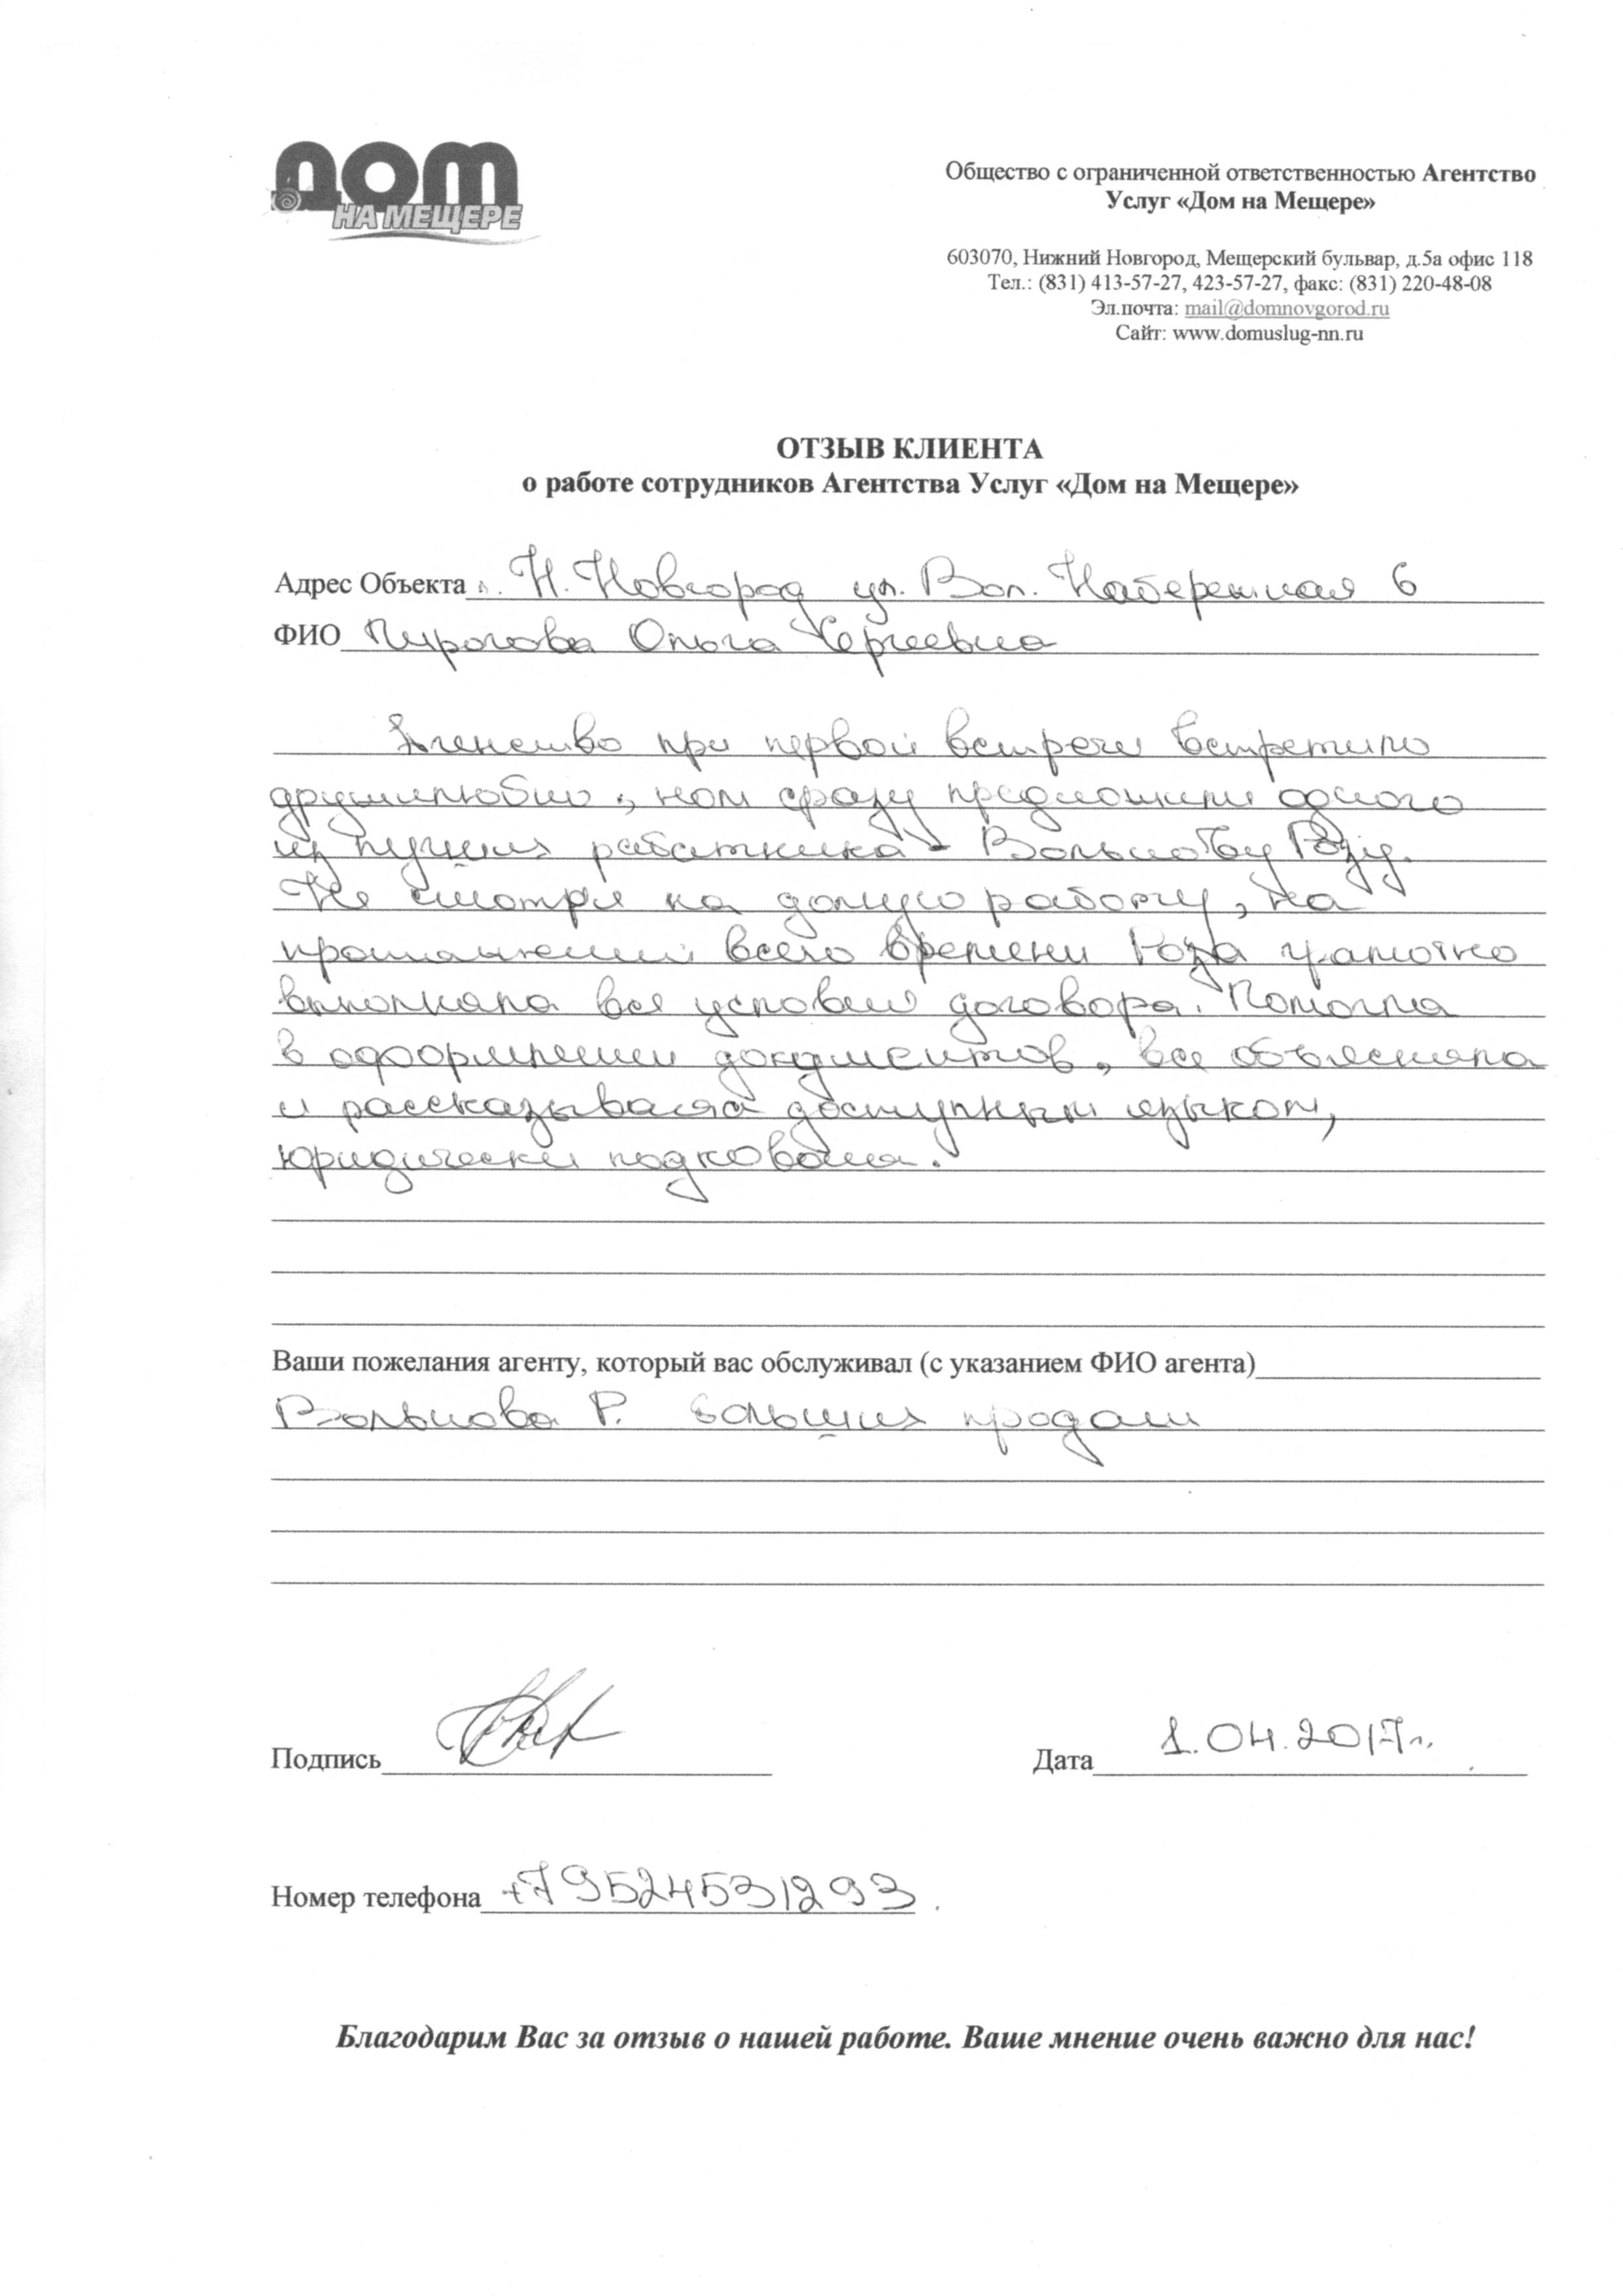 ДОМ
НА МЕЩЕРЕ
Общество с ограниченной ответственностью Агентство
Услуг «Дом на Мещере»
603070, Нижний Новгород, Мещерский бульвар, д.5а офис 118
Тел.: (831) 413-57-27, 423-57-27, факс: (831) 220-48-08
Эл.почта: mail@domnovgorod.ru
Сайт: www.domuslug-nn.ru
ОТЗЫВ КЛИЕНТА
о работе сотрудников Агентства Услуг «Дом на Мещере»
Адрес Объекта г. Н. Новгород ул. Вол. Набережная 6
ФИО Пирогова Ольга Сергеевна
Агенство при первой встречи встретило
дружилюбно, нам сразу предложили одного
из лучших работника - Вольнову Розу.
Не смотря на долгую работу, на
протяжении всего времени Роза грамотно
выполняла все условия договора. Помогла
в оформлении документов, все объясняла
и рассказывала доступным языком,
юридически подкована.
Ваши пожелания агенту, который вас обслуживал (с указанием ФИО агента)
Вольнова Р. больших продаж
Подпись
Дата 1.04.2017г.
Номер телефона +79524531293
Благодарим Вас за отзыв о нашей работе. Ваше мнение очень важно для нас!